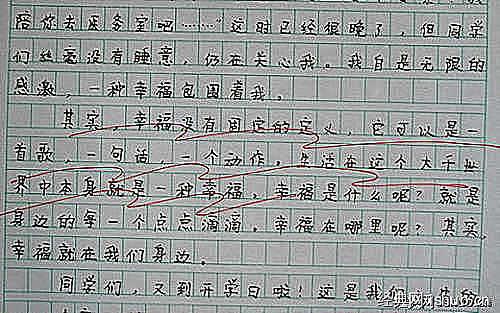 陪你去医务室吧……这时已经很晚了，但同学
们丝毫没有睡意，仍在关心我。我自是无限的
感激，一种幸福包围着我。
其实，幸福没有固定的定义，它可以是一
首歌，一句话，一个动作。生活在这个大千世
界中本身就是一种幸福，幸福是什么呢？就是
身边的每一个点点滴滴，幸福在哪里呢？其实，
幸福就在我们身边。
同学们，又到开学日啦！这是我们